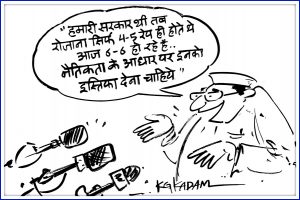 "हमारी सरकार थी तब
रोजाना सिर्फ 4-5 रेप ही होते थे
आज 6-6 हो रहे है..
नैतिकता के आधार पर इनको
इस्तिफा देना चाहिये"
KGKADAM